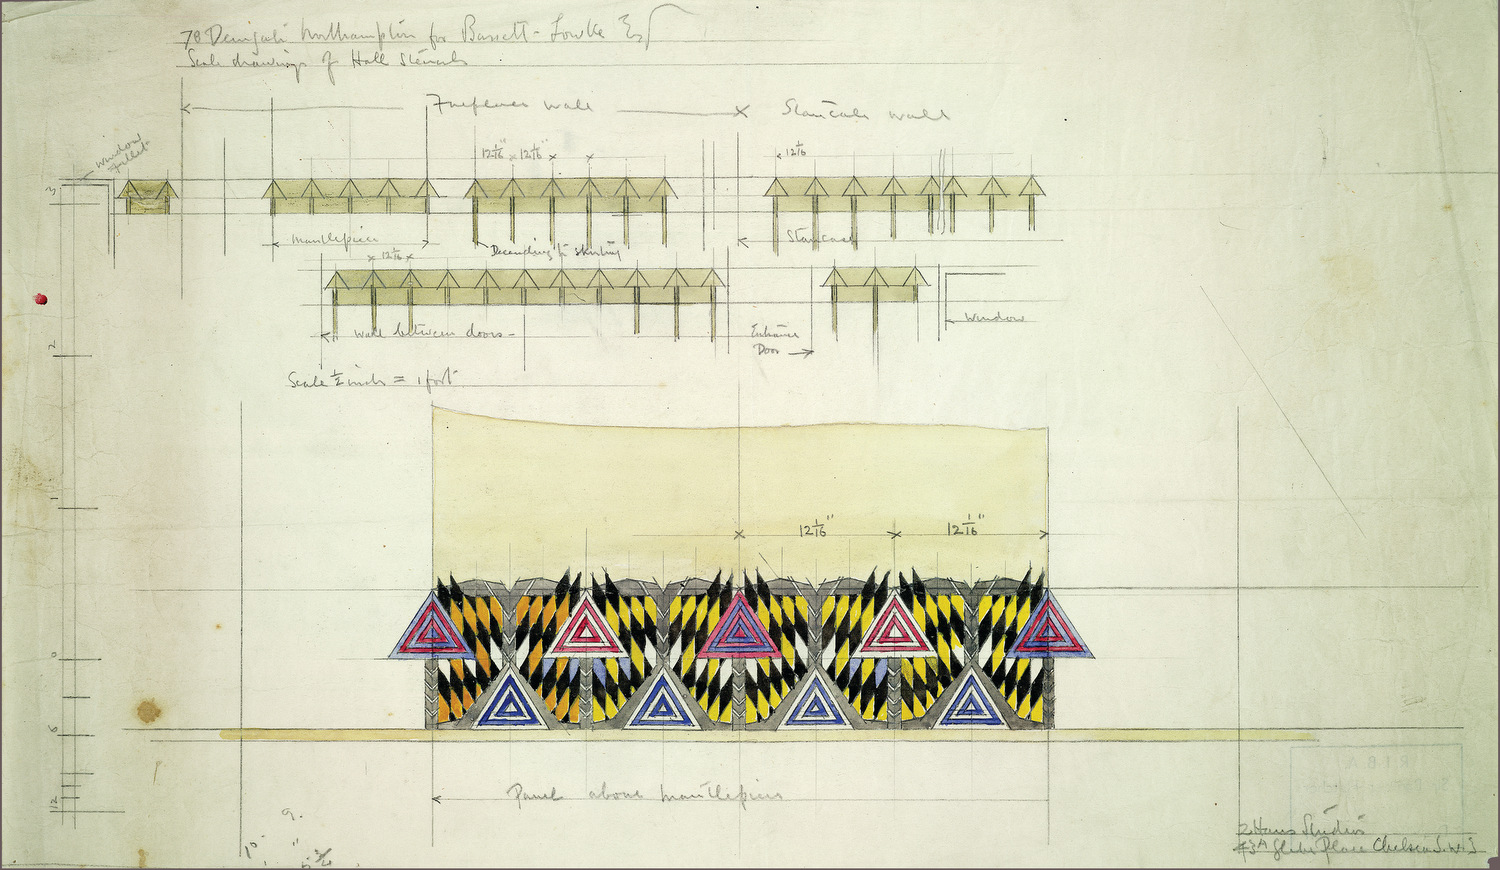 78 Derngate Northampton for Bassett-Lowke Esq
Scale drawings of Hall Stencils
Fireplace wall
Staircase wall
window
fillet
12 1/16" 12 1/16"
12 1/16
3
mantlepiece
Decending to skirting
Staircase
12 1/16
wall between doors
Entrance
Door
window
2
Scale ½ inch = 1 foot
1
12 1/16" 12 1/16"
0
6
12
Panel above mantlepiece
RIBA
9.
10
2 Hans Studios
43A Glebe Place Chelsea S.W.3